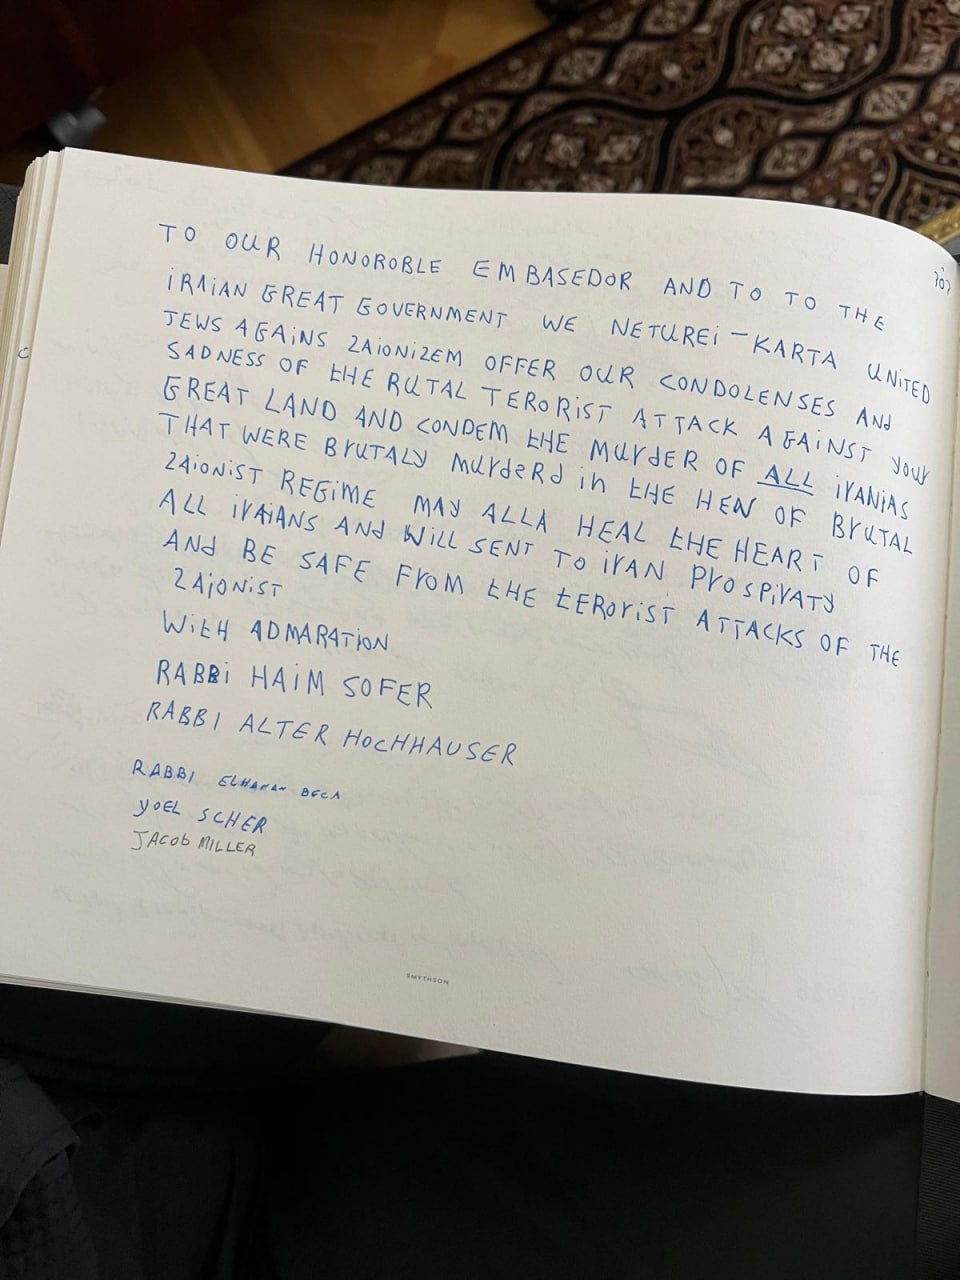 TO OUR HONOROBLE EMBASEDOR AND TO TO THE
iRAiAN GREAT GOVERNMENT WE NETUREi-KARTA UNiTED
JEWS AGAiNS ZAiONiZEM OFFER OUR CONDOLENSES ANd
SADNESS OF tHE RUTAL TERORiST ATTACK AGAiNST your
GREAT LAND AND CONDEM tHE MurdER OF ALL iraNiAS
THAT WERE BrUTALy MurdeRd in tHE HEN OF BrUTAL
ZAiONiST REGiME MAy ALLA HEAL tHE HEART OF
ALL iraiANS ANd WiLL SENT TO irAN ProSPiraTy
ANd BE SAFE From tHE tERoriST ATTACKS OF THE
ZAjONiST
WitH ADMARATiON
RABBi HAiM SOFER
RABBI ALTER HOcHHAUSER
RABBI ELHANAN BECA
yOEL SCHER
JACOb MILLER
SMYTHSON